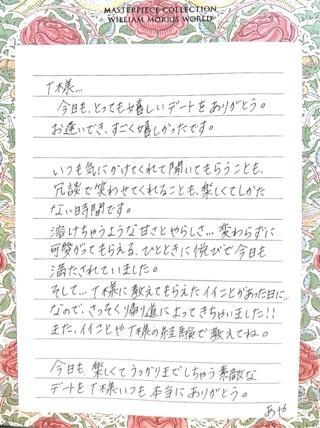 MASTERPIECE COLLECTION
WILLIAM MORRIS WORLD
T様...
今日も、とっても嬉しいデートをありがとう。
お逢いでき、すごく嬉しかったです。
いつも気にかけてくれて聞いてもらうことも、
冗談で笑わせてくれることも、楽しくてしかた
ない時間です。
溶けちゃうような甘さとやらしさ... 変わらずに
可愛がってもらえる、ひとときに悦びで今日も
満たされていました。
そして... T様に教えてもらえたイイことがあった日に...
なので、さっそく帰り道によってきちゃいました!!
また、イイことやT様の経験で教えてね。
今日も、楽しくてうっかりまでしちゃう素敵な
デートをT様いつも本当にありがとう。
あや